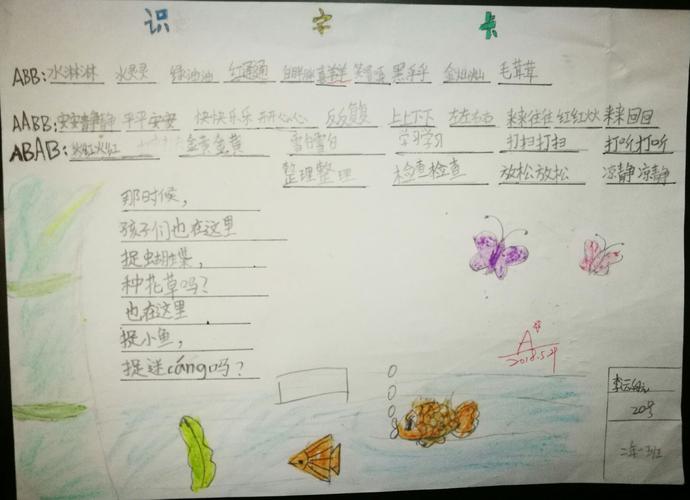 识 字 卡
ABB: 水淋淋 水灵灵 绿油油 红通通 喜洋洋 黑乎乎 金灿灿 毛茸茸
AABB: 安安静静 平平安安 快快乐乐 开开心心 反反复复 上上下下 左左右右 来来往往 红红火火 来来回回
ABAB: 火红火红 金黄金黄 雪白雪白 学习学习 打扫打扫 打听打听
整理整理 检查检查 放松放松 凉静凉静
那时候，
孩子们也在这里
捉蝴蝶，
种花草吗？
也在这里
捉小鱼，
捉迷cáng吗？
A
2018.5.29
20号
二年一班